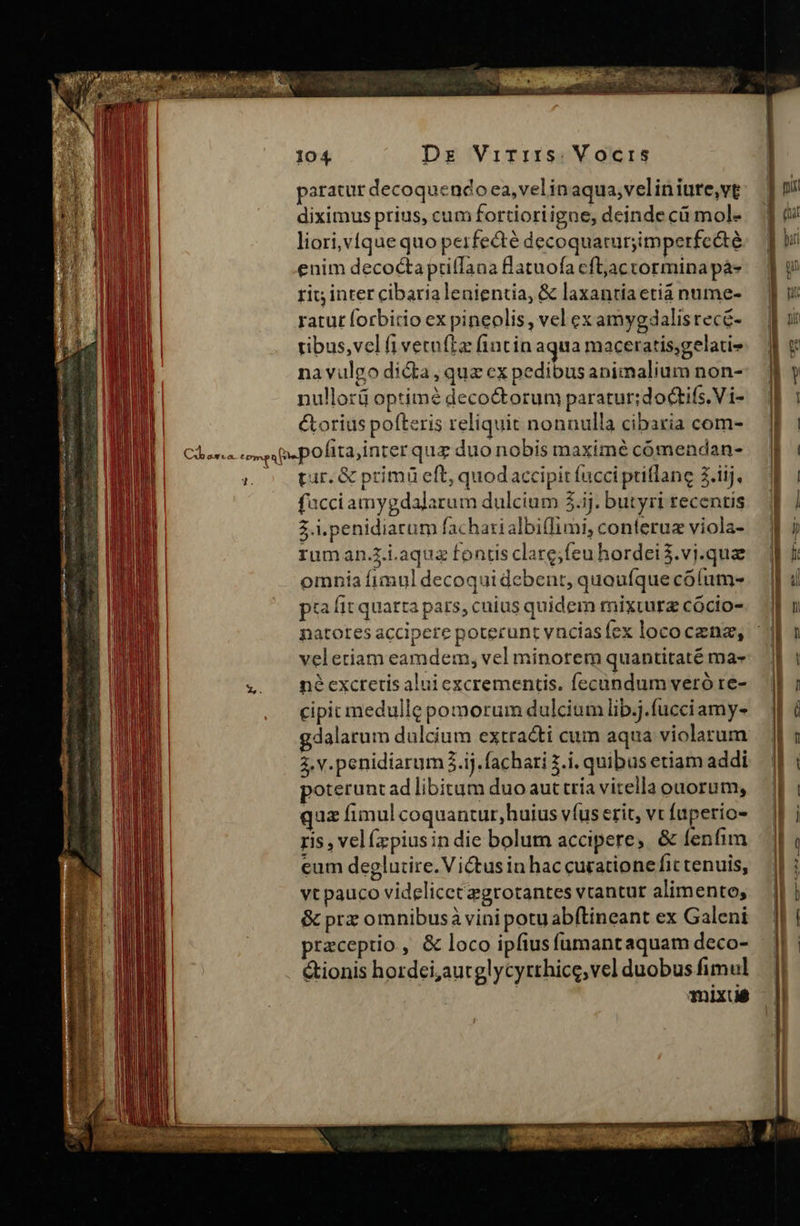 104 De Vitiis Vocis
paratur decoquendo ea, vel in aqua, vel in iure, vt
diximus prius, cum fortiori igne, deinde cū mol-
liori, vſque quo perfectè decoquatur; imperfectè
enim decocta ptiſſana flatuoſa eſt, ac tormina pa-
rit; inter cibaria lenientia, & laxantia etiā nume-
ratur ſorbitio ex pineolis, vel ex amygdalis recē-
tibus, vel ſi vetuſtæ ſint in aqua maceratis, gelati-
na vulgo dicta, quæ ex pedibus animalium non-
nullorū optimè decoctorum paratur; doctiſs. Vi-
ctorius poſteris reliquit nonnulla cibaria com-
Cibaria compoſita poſita, inter quæ duo nobis maximè cōmendan-
1. tur. & primū eſt, quod accipit ſucci ptiſſanę ʒ.iij.
ſucci amygdalarum dulcium ʒ.ij. butyri recentis
ʒ.i. penidiarum ſachari albiſſimi, conſeruæ viola-
rum an.ʒ.i. aquæ fontis claræ, ſeu hordei ʒ.vj. quæ
omnia ſimul decoqui debent, quouſque cōſum-
pta ſit quarta pars, cuius quidem mixturæ cōcio-
natores accipere poterunt vncias ſex loco cænæ,
vel etiam eamdem, vel minorem quantitatē ma-
2. nè excretis alui excrementis. ſecundum verò re-
cipit medullę pomorum dulcium lib.j. ſucci amy-
gdalarum dulcium extracti cum aqua violarum
ʒ.v. penidiarum ʒ.ij. ſachari ʒ.i. quibus etiam addi
poterunt ad libitum duo aut tria vitella ouorum,
quæ ſimul coquantur, huius vſus erit, vt ſuperio-
ris, vel ſæpius in die bolum accipere, & ſenſim
eum deglutire. Victus in hac curatione ſit tenuis,
vt pauco videlicet ægrotantes vtantur alimento,
& præ omnibus à vini potu abſtineant ex Galeni
præceptio, & loco ipſius ſumant aquam deco-
ctionis hordei, aut glycyrrhicę, vel duobus ſimul
mixtis